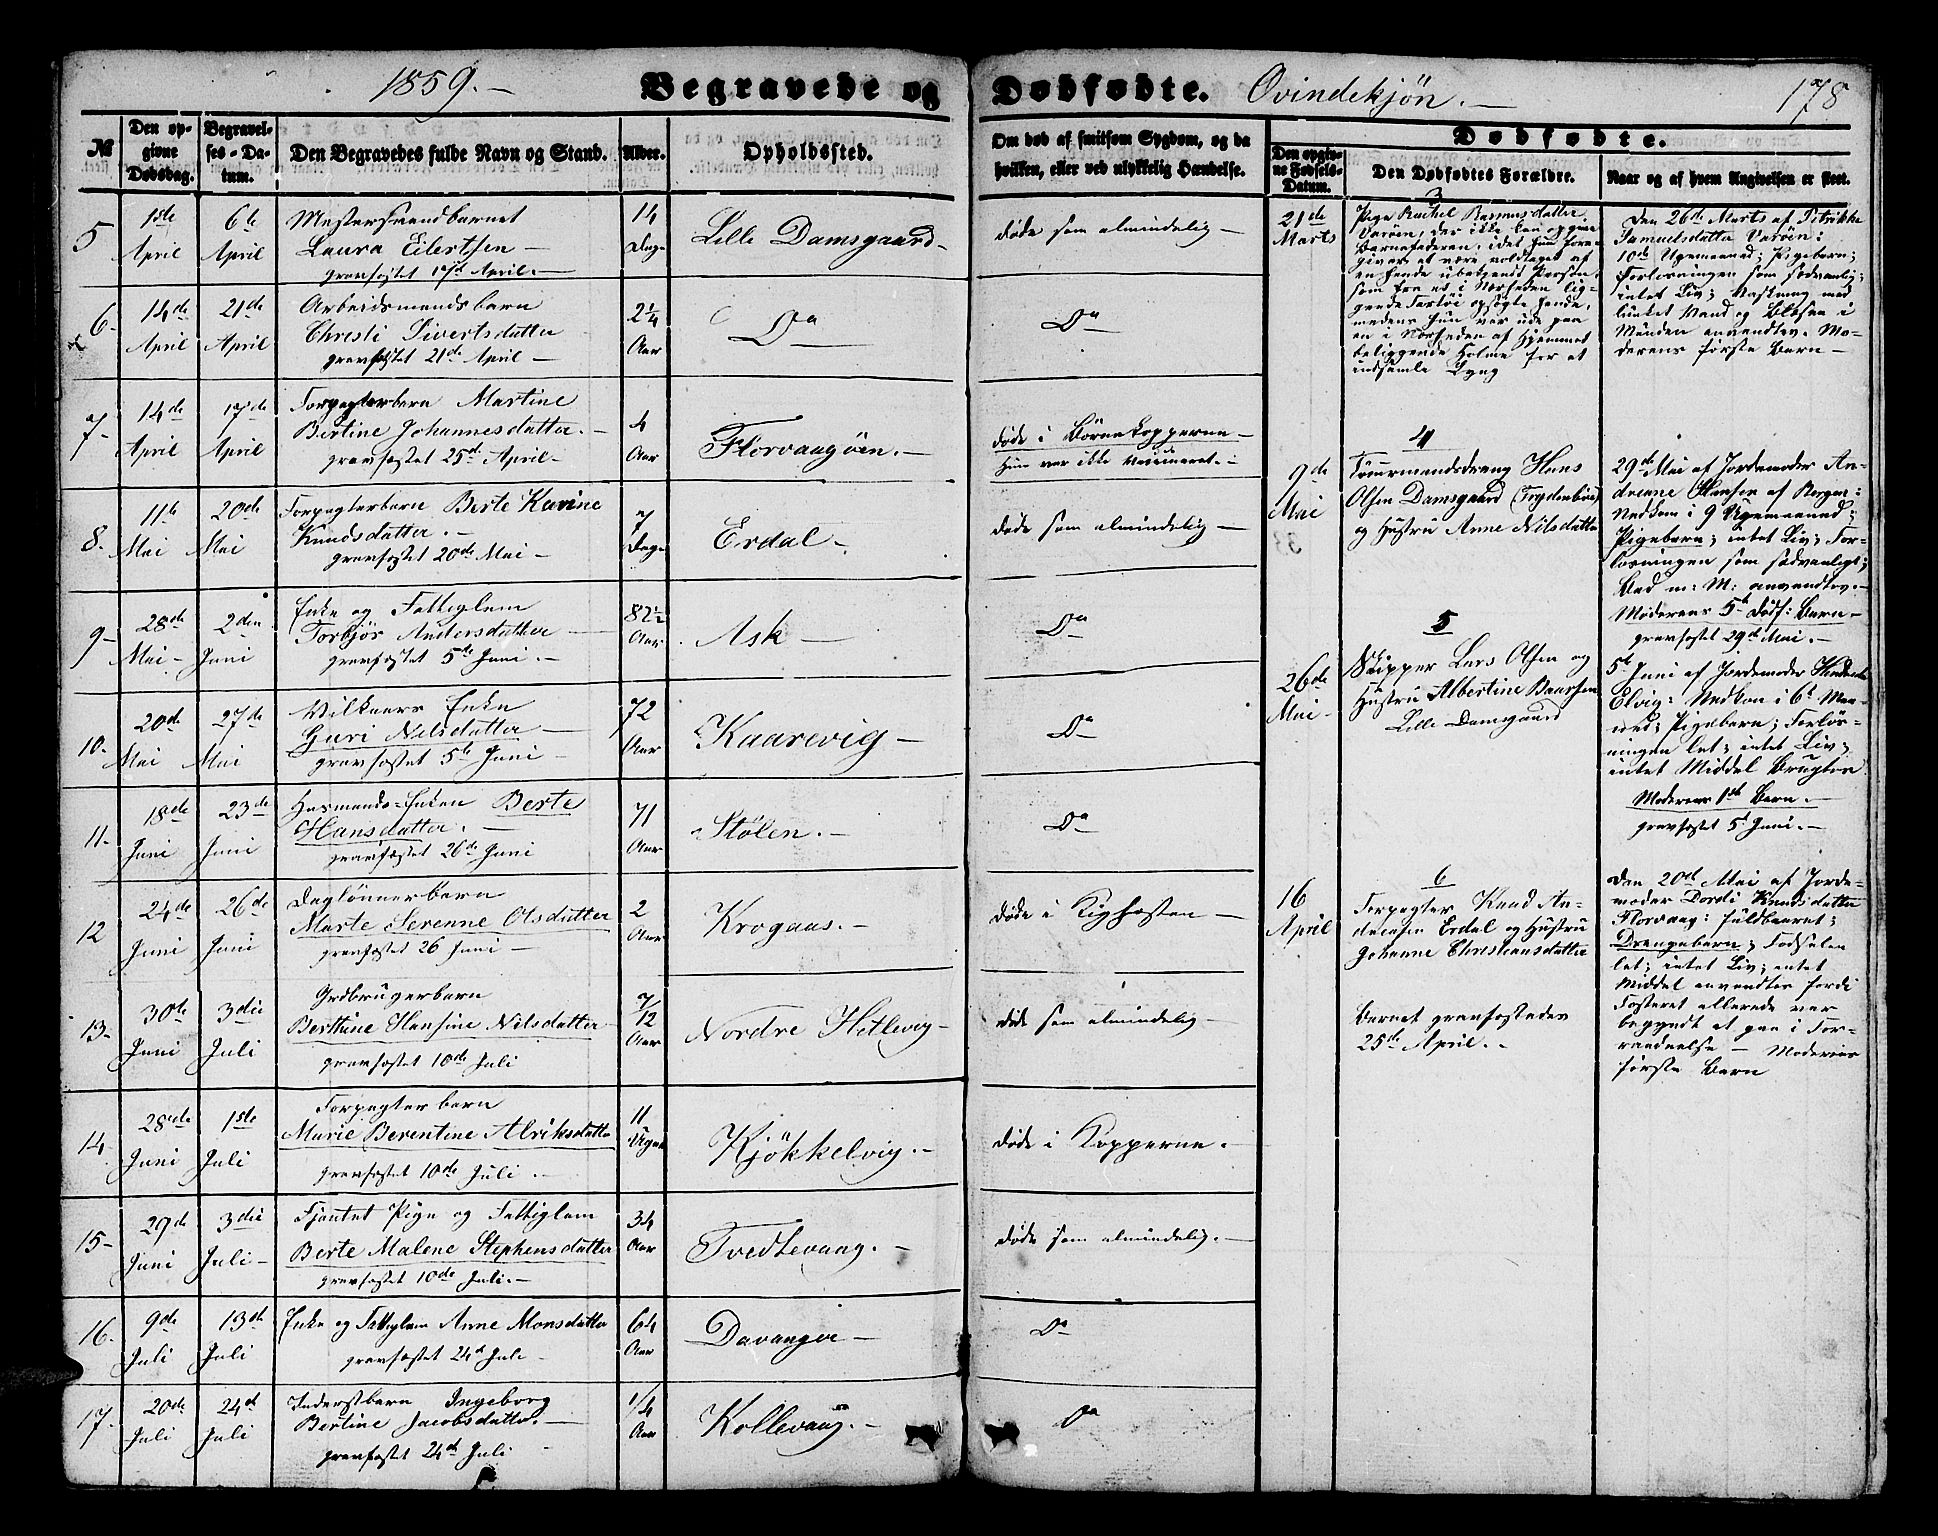 1859.
Begravede og Dødfødte. Qvindekjøn.
178
№
Den opgivne Dødsdag.
Begravelses-Datum.
Den Begravedes fulde Navn og Stand.
Alder.
Opholdssted.
Om død af smitsom Sygdom, og da hvilken, eller ved ulykkelig Hændelse.
Dødfødte.
Den opgivne Fødsels-Datum.
Den Dødfødtes Forældre.
Naar og af hvem Angivelsen er skeet.
5
1ste April
6te April
Mestersvendbarnet
Laura Eilertsen
gravfæstet 17d April.
14 Dage
Lille Damsgaard
døde som almindelig
6.
14de April
21de April
Arbeidsmandsbarn
Christi Sivertsdatter
gravfæstet 21de April
2¼ Aar
Do
Do
7.
14de April
17de April
Forpagterbarn Martine
Bertine Johannesdatter.
gravfæstet 25d April
4 Aar
Florvaagøen.
døde i Børnekopperne
Hun var ikke vaccineret.
8.
11te Mai
20de Mai
Forpagterbarn Berte Karine
Knudsdatter.
gravfæstet 20de Mai
7 Dage
Erdal
døde som almindelig
9
28de Mai
2den Juni
Enke og Fattiglem
Torbjør Andersdatter
gravfæstet 5te Juni.
82½ Aar
Ask
Do
10.
20de Mai
27de Mai
Enke
Guri Nilsdatter
gravfæstet 5te Juni
72 Aar
Kaarevig
Do
11.
18de Juni
23de Juni
Husmands-Enken Berte
Hansdatter.
gravfæstet 26de Juni
71 Aar
Stølen.
Do
12
24de Juni
26de Juni
Daglønnerbarn
Marte Serenne Olsdatter
gravfæstet 26 Juni
2 Aar
Krogaas.
døde i Kighosten
13.
30te Juni
3die Juli
Grdbrugerbarn
Berthine Hansine Nilsdatter
gravfæstet 10de Juli
7/12 Aar
Nordre Hetlevig
døde som almindelig
14.
28de Juni
1ste Juli
Forpagterbarn
Marie Berentine Alriksdatter
gravfæstet 10de Juli.
11 Uger
Kjøkkelvig.
døde i Kopperne.
15
29de Juni
3die Juli
Fjantet Pige og Fattiglem
Berte Malene Stephensdatter
gravfæstet 10de Juli.
34 Aar
Tvedtevaag.
døde som almindelig.
16.
9de Juli
13de Juli
Enke og Fattiglem Anne Monsdatter
gravfæstet 24d Juli
64 Aar
Davanger
Do
17.
20de Juli
24d Juli
Inderstbarn Ingeborg
Bertine Jacobsdatter.
gravfæstet 24d Juli
1/4 Aar
Kollevaag.
Do
3
21de Marts
Pige Rachel Rasmusdatter
Varøen, der ikke kan opgive
Barnefaderen, idet hun fore-
giver at være voldtaget af
en hende ubekjendt Person,
som fra et i Nærheden lig-
gende Fartøi opsøgte hende,
medens hun var ude paa
en i Nærheden af Hjemmet
beliggende Holme for at
indsamle Lyng
Den 26de Marts af Petrikke
Samuelsdatter Varøen:
10de Ugemaaned; Pigebarn;
Forløsningen som sædvanlig;
intet Liv; Vaskning med
lunket Vand og Blæsen i
Munden anvendtes. Mo-
derens første Barn
4
9de Mai
Tømmermandsdreng Hans
Olsen Damsgaard (Frydenbøe)
og Hustru Anne Nilsdatter
29de Mai af Jordemoder An-
dreanne Hansen af Bergen:
Nedkom i 9 Ugemaaned;
Pigebarn; intet Liv; For-
løsningen som sædvanligt;
Bad m: M: anvendtes.
Moderens 5te Dødf: Barn
gravfæstet 29de Mai.
5
26de Mai
Skipper Lars Olsen og
Hustru Albertine Baarsen
Lille Damsgaard
5te Juni af Jordemoder
Elvig: Nedkom i 6te Maa-
ned; Pigebarn; Forløs-
ningen let; intet Liv;
intet Middel brugtes.
Moderens 1ste Barn.
gravfæstet 5d Juni.
6
16 April
Forpagter Knud An-
dersen Erdal og Hustru
Johanne Christiansdatter
Barnet gravfæstedes
25de April.
Den 20de Mai af Jorde-
moder Dordi Knudsdatter
Florvaag: fuldbaaret;
Drengebarn; Fødselen
let; intet Liv; intet
Middel anvendtes fordi
Fosteret allerede var
begyndt at gaa i For-
raadnelse — Moderens
første Barn